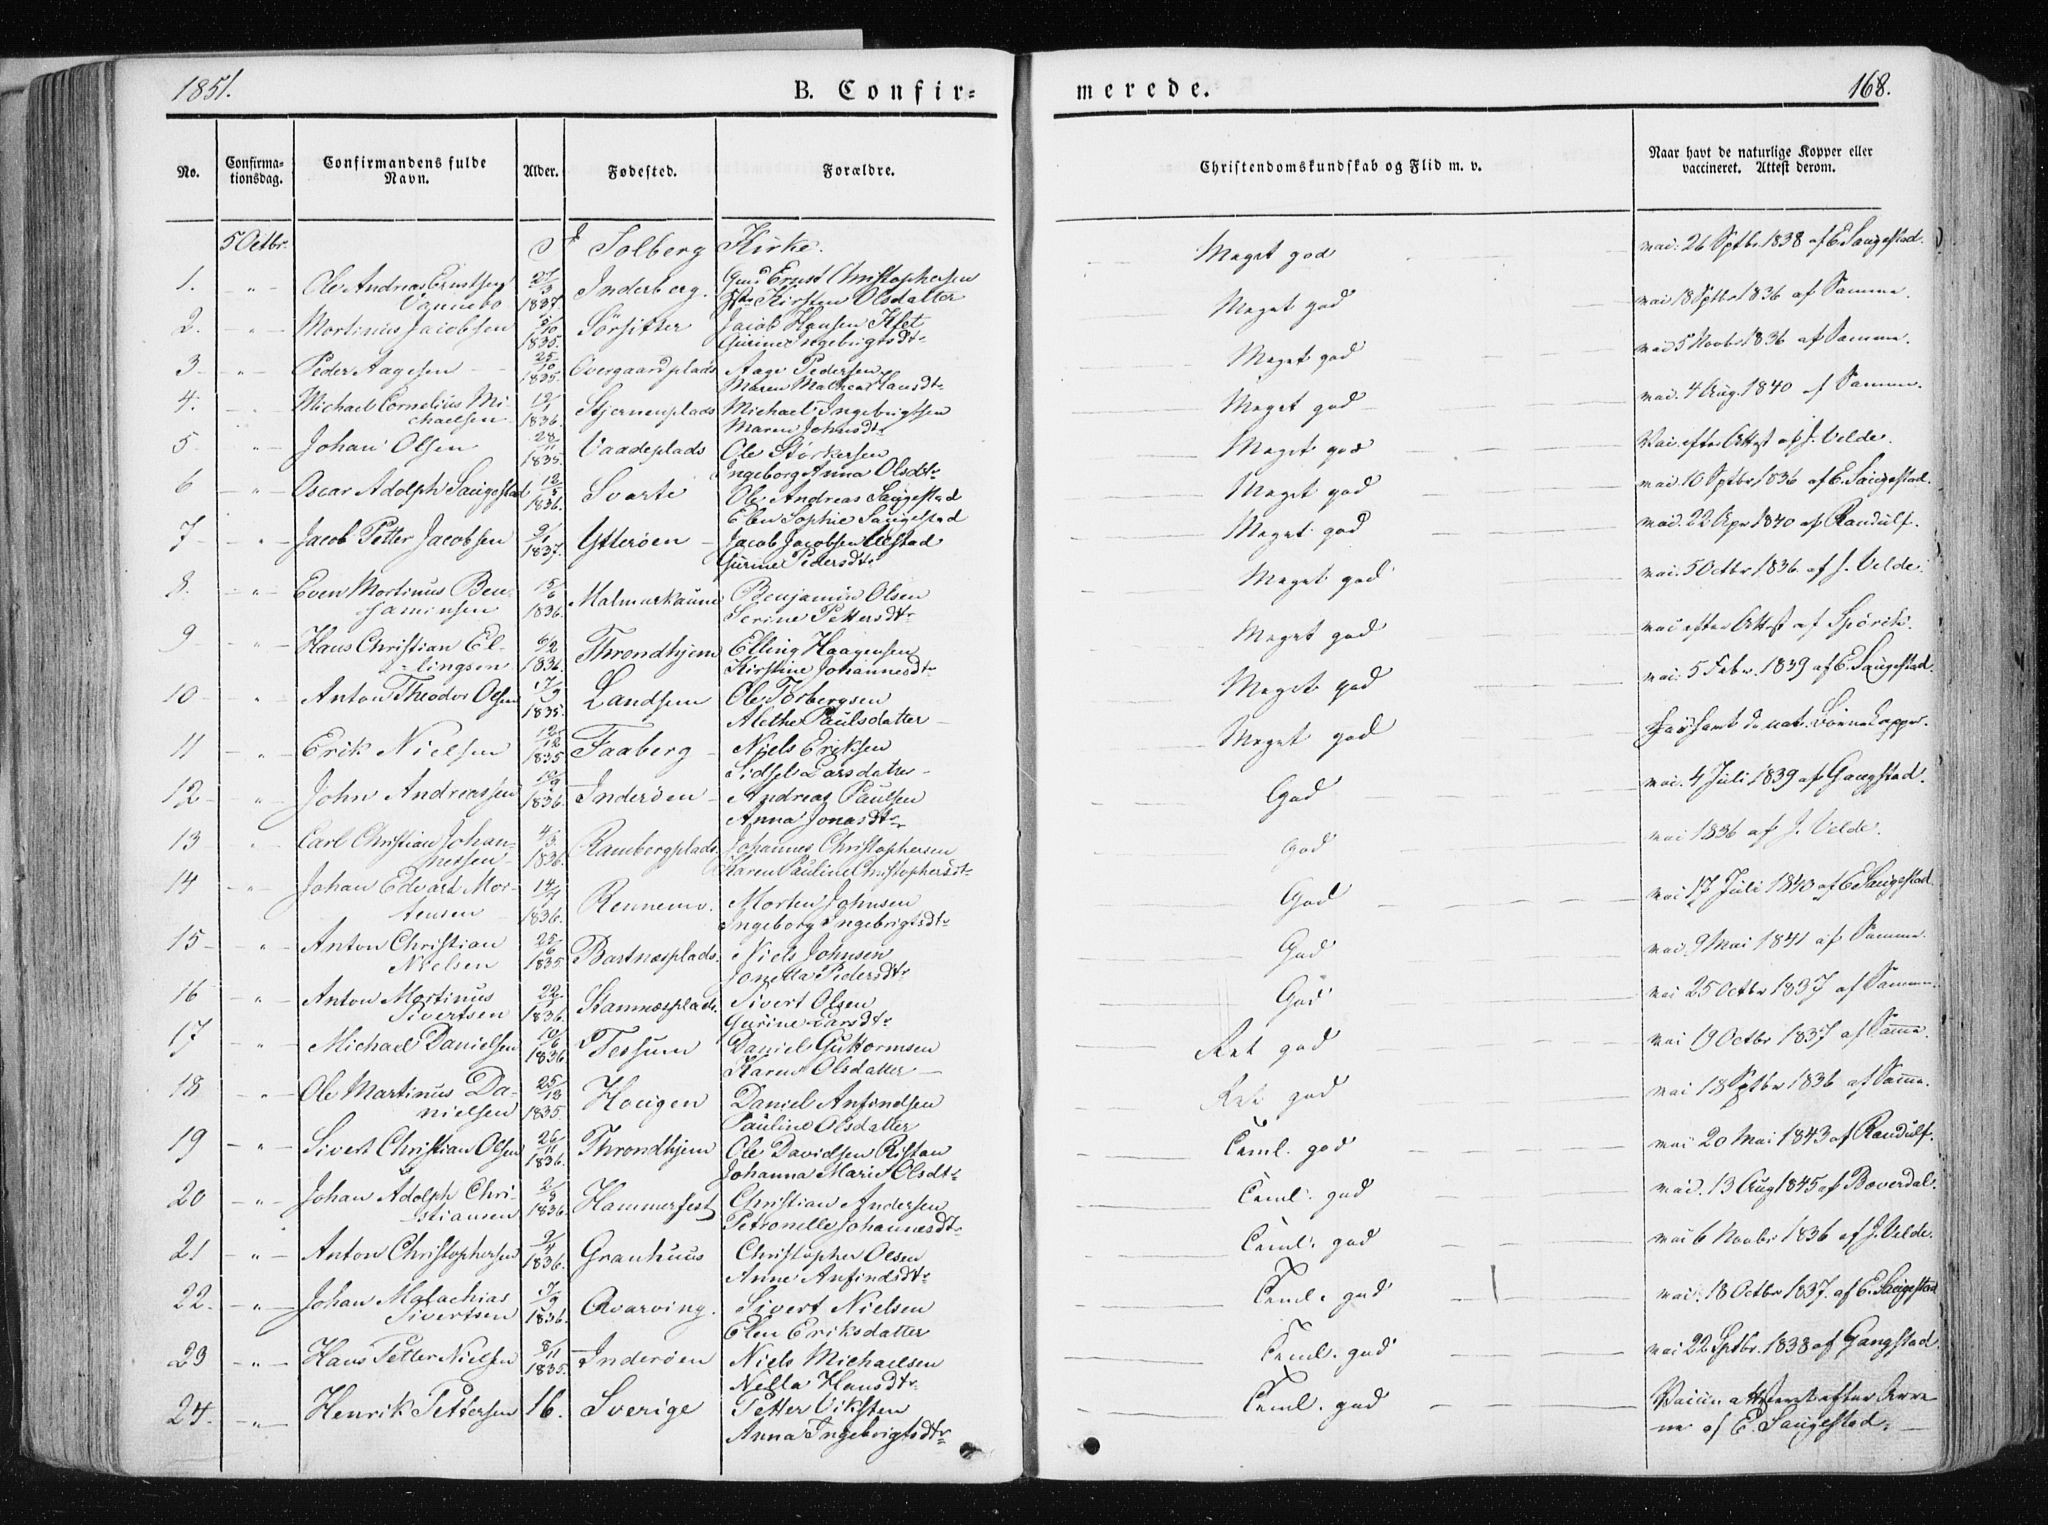 1851.
B. Confir-
merede.
168.
No.
Confirma-
tionsdag.
Confirmandens fulde
Navn.
Alder.
Fødested.
Forældre.
Christendomskundskab og Flid m. v.
Naar havt de naturlige Kopper eller
vaccineret. Attest derom.
5 Octbr. I Solberg Kirke.
1. " Ole Andreas Erntsen Vannebo 27/3 1837 Inderberg. Ernst Christophersen Kirsten Olsdatter Meget god vac. 26 Sptbr 1838 af E. Saugestad.
2. " Mortinus Jacobsen 5/10 1835. Sørsitter Jacob Hansen Gurine Ingebrigtsdtr Meget god vac 18 Sptbr 1836 af Samme.
3. " Peder Aagesen 25/10 1835. Overgaardplads Aage Pedersen Maren Hansdtr Meget god vac 5 Novbr 1836 af Samme.
4. " Michael Cornelius Mi-
chaelsen 12/1 1836. Stjernenplads Michael Ingebrigtsen Maren Johnsdtr Meget god vac. 4 Aug. 1840 af Samme.
5 " Johan Olsen 28/11 1835. Vaadeplads Ole Størkersen Ingeborg Anna Olsdtr Meget god Vac. efter Attest af J. Velde.
6 " Oscar Adolph Saugestad 12/5 1836. Svarte Ole Andreas Saugestad Elen Sophie Saugestad Meget god vac. 10 Sptbr 1836 af E. Saugestad.
7 " Jacob Petter Jacobsen 9/1 1837. Ytterøen Jacob Jacobsen Gurine Pedersdtr Meget god vac. 22 Apr 1840 af Randulf.
8. " Even Mortinus Ben-
jaminsen 15/6 1836. Malmarkaune Benjamin Olsen Serine Pettersdtr Meget god vac. 5 Octbr 1836. af J. Velde.
9 " Hans Christian El-
lingsen 6/2 1836. Throndhjem Elling Haagensen Kirstine Johannesdtr Meget god vac efter Attest af
10 " Anton Theodor Olsen 17/9 1835. Landsem Ole Torbergsen Alethe Paulsdatter Meget god vac. 5 Febr. 1839 af E. Saugestad.
11 " Erik Nielsen 12/12 1835 Faaberg Niels Eriksen Sidsel Larsdatter Meget god
12 " John Andreassen 1836. Inderøen Andreas Paulsen Anna Jonasdtr God vac. 4 Juli 1839 af Gangstad.
13 " Carl Christian Johan-
nessen 4/3 1836. Rambergplads. Johannes Christophersen Karen Pauline Christophersdtr God vac 1836 af J. Velde.
14 " Johan Edvart Mor-
tensen 14/4 1836. Rennemo. Morten Johnsen Ingeborg Ingebrigtsdtr God vac 17 Juli 1840 af E Saugestad.
15 " Anton Christian
Nielsen 25/6 1835 Bartnesplads. Niels Johnsen Jonetta Pedersdtr God vac. 9 Mai 1841 af Samme.
16 " Anton Martinus
Sivertsen 22/1 1836. Stamnesplads. Sivert Olsen Gurine Larsdtr God vac 25 Octbr 1837 af Samme.
17 " Michael Danielsen 10/6 1836 Tessum Daniel Guttormsen Karen Olsdatter Ret god vac 19 Octbr 1837 af Samme
18 " Ole Martinus Da-
nielsen 1835 Hougen Daniel Anfindsen Pauline Olsdatter Ret god vac 18 Sptbr 1836 af Samme.
19 " Sivert Christian Olsen 26/11 1836. Throndhjem Ole Davidsen Ristan Johanna Marie Olsdtr Teml. god vac 20 Mai 1843 af Randulf.
20 " Johan Adolph Chri-
stiansen 2/3 1836. Hammerfest Christian Andersen Petronelle Johannesdtr Teml. god vac. 13 Aug 1845 af Bøverdal.
21 " Anton Christophersen 2/4 1836. Granhuus Christopher Olsen Anne Anfindsdtr Teml. god vac 6 Novbr 1836 af J. Velde.
22. " Johan Malachias
Sivertsen 7/9 1836. Qvarving. Sivert Nielsen Elen Eriksdatter Teml. god vac. 18 Octbr 1837. af E. Saugestad
23 " Hans Petter Nielsen 8/11 1835. Inderøen Niels Michaelsen Nella Hansdtr Teml. god vac 22 Sptbr. 1838 af Gangstad.
24. " Henrik Pettersen 16. Sverige Petter Viksten Anna Ingebrigtsdtr Teml. god efter Arre
ne af E. Saugestad.